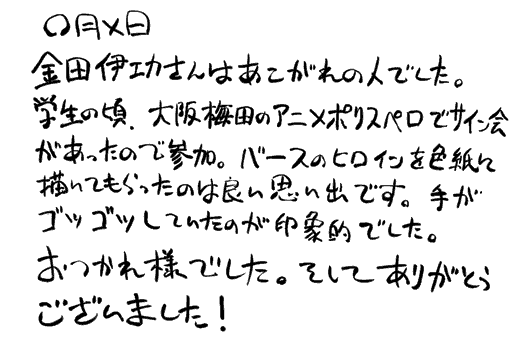 〇月×日
金田伊功さんはあこがれの人でした。
学生の頃、大阪梅田のアニメポリスペロでサイン会
があったので参加。バースのヒロインを色紙に
描いてもらったのは良い思い出です。手が
ゴツゴツしていたのが印象的でした。
おつかれ様でした。そしてありがとう
ございました！